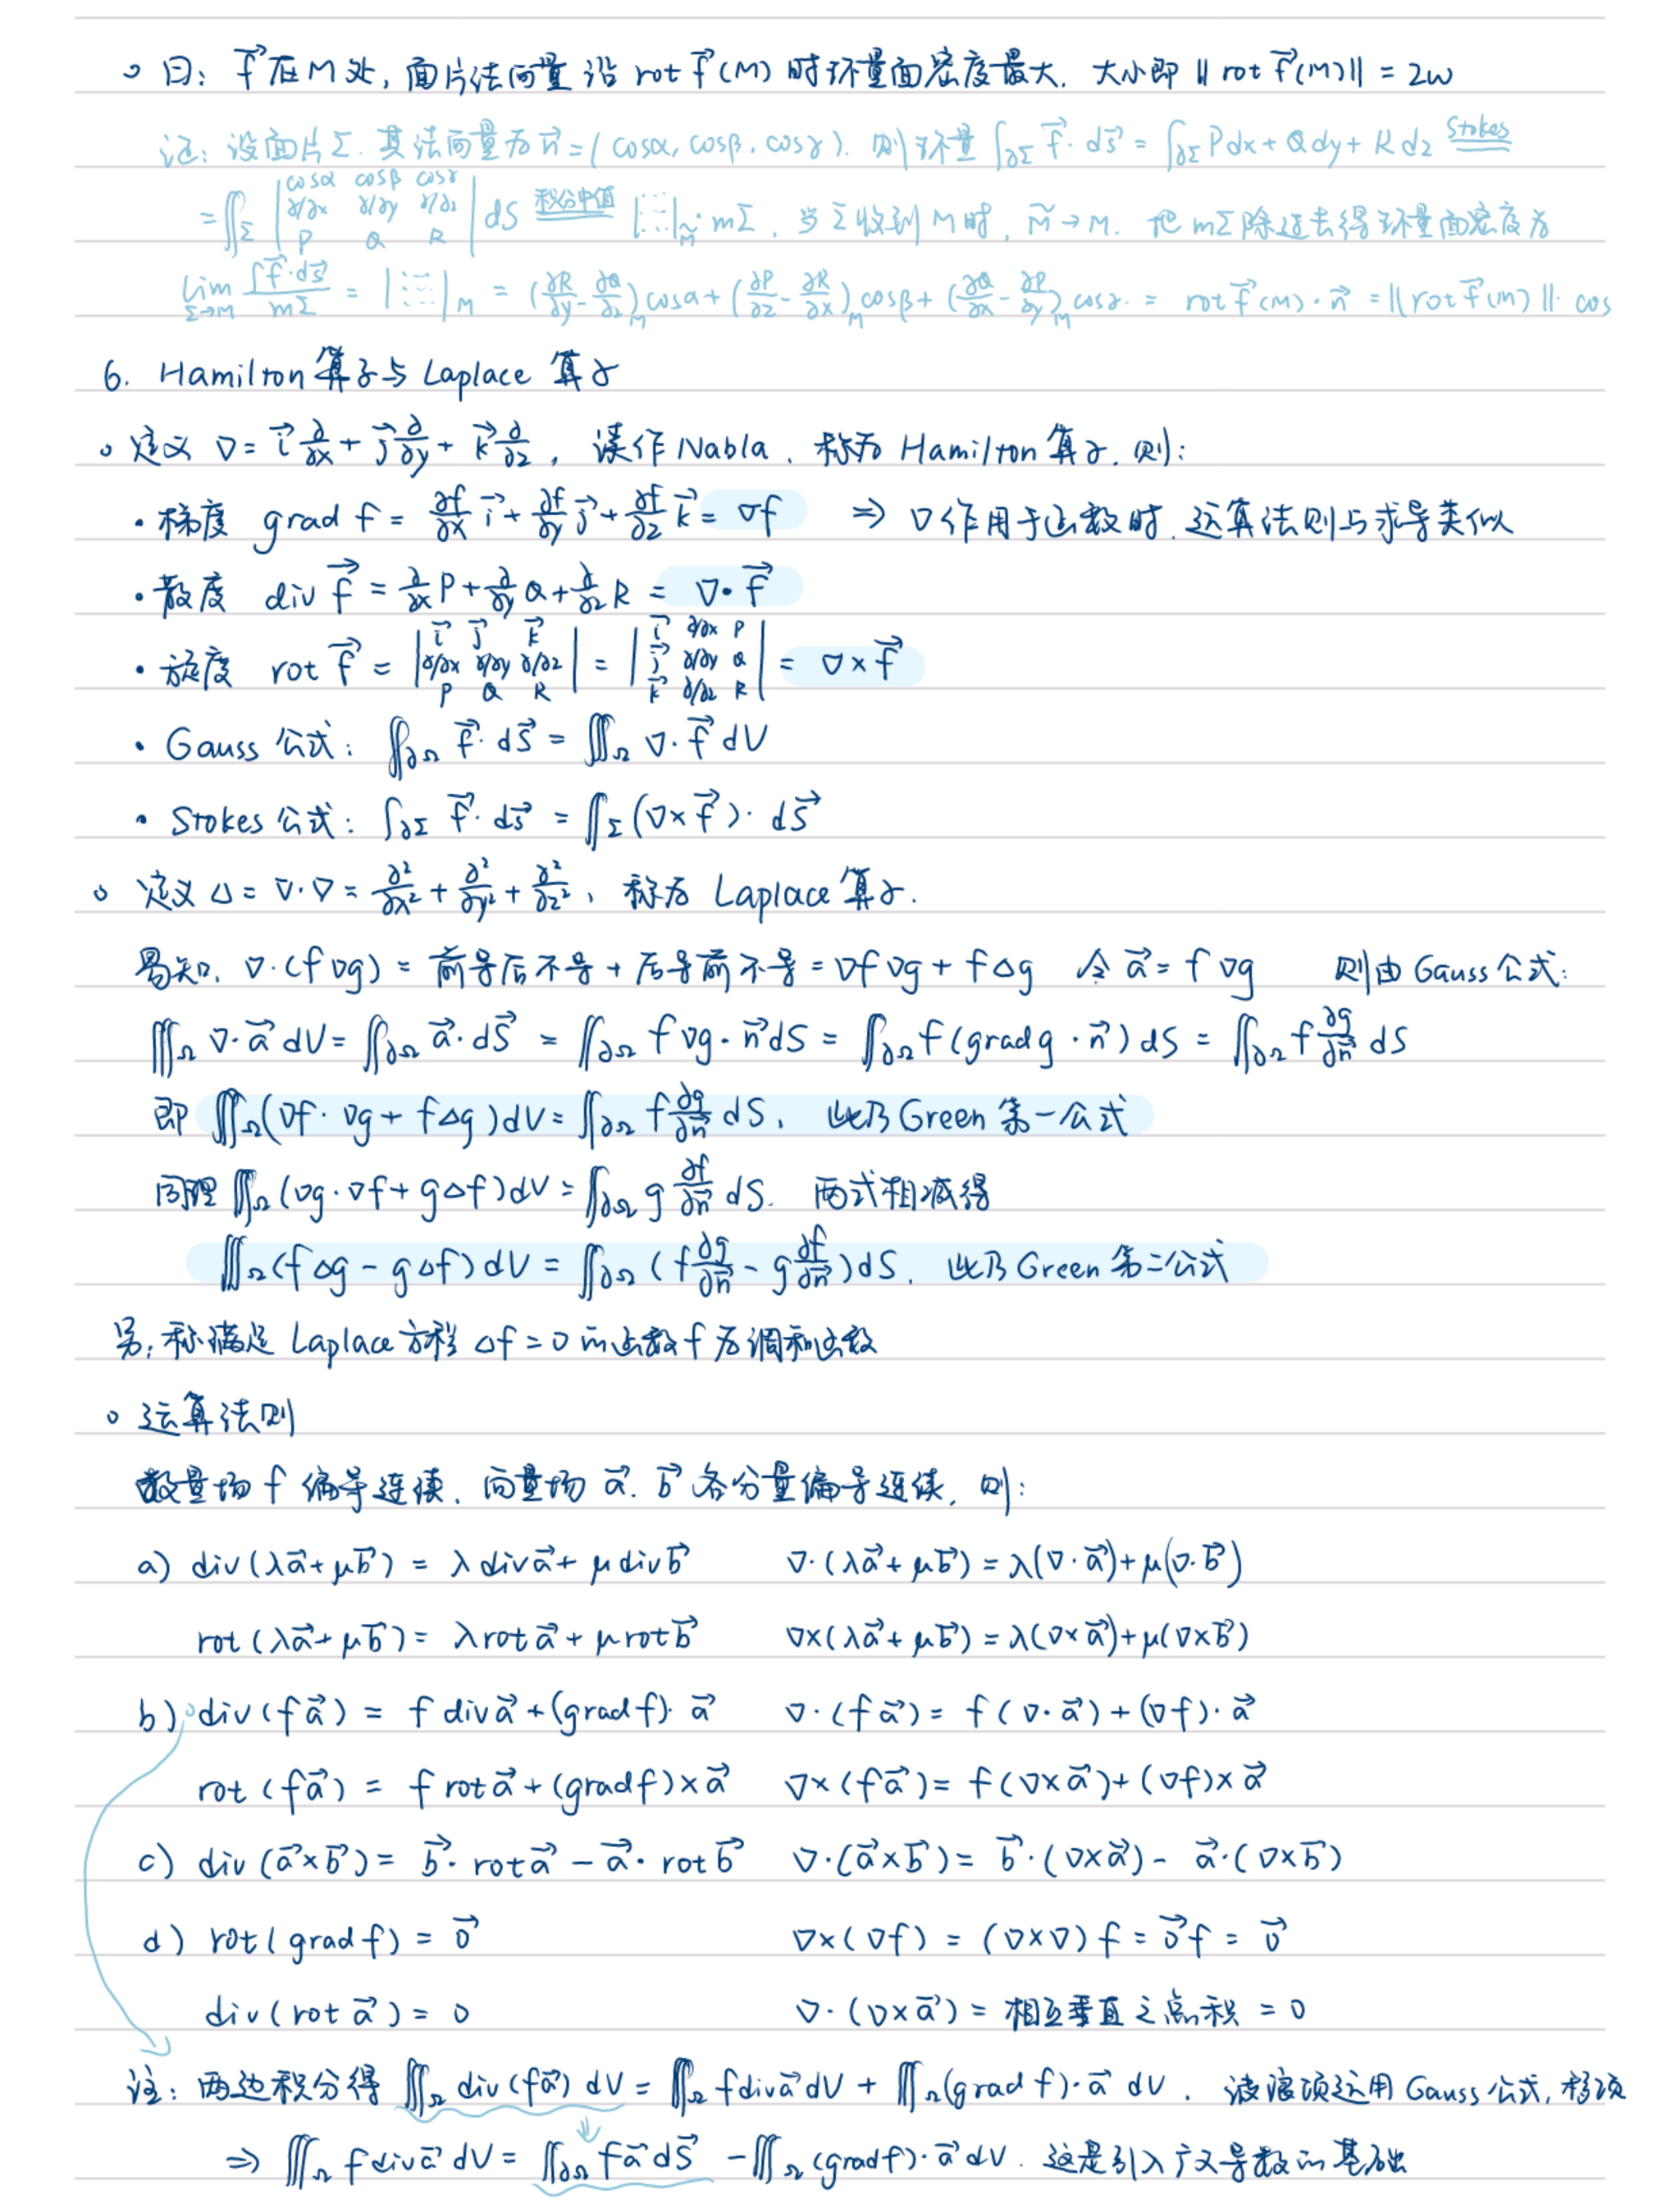 曰: f⃗ 在 M 处, 面片法向量 沿 rot f⃗ (M) 时环量面密度最大. 大小即 ‖ rot f⃗ (M) ‖ = 2ω
记: 设面片 Σ. 其法向量为 n⃗ = (cosα, cosβ, cosγ). 则环量 ∫_∂Σ f⃗ · ds⃗ = ∫_∂Σ Pdx + Qdy + Rdz (Stokes) =
= ∬_Σ | cosα cosβ cosγ ; ∂/∂x ∂/∂y ∂/∂z ; P Q R | dS (积分中值) = |⋯|_M̃ · mΣ, 当 Σ 收到 M 时, M̃ → M. 把 mΣ 除过去得环量面密度为
lim_{Σ→M} ∫f⃗·ds⃗ / mΣ = |⋯|_M = (∂R/∂y - ∂Q/∂z)_M cosα + (∂P/∂z - ∂R/∂x)_M cosβ + (∂Q/∂x - ∂P/∂y)_M cosγ. = rot f⃗ (M) · n⃗ = ‖ rot f⃗ (M) ‖ · cos
6. Hamilton 算子与 Laplace 算子
定义 ∇ = i⃗ ∂/∂x + j⃗ ∂/∂y + k⃗ ∂/∂z, 读作 Nabla, 称为 Hamilton 算子. 则:
· 梯度 grad f = ∂f/∂x i⃗ + ∂f/∂y j⃗ + ∂f/∂z k⃗ = ∇f ⇒ ∇作用于函数时, 运算法则与求导类似
· 散度 div f⃗ = ∂/∂x P + ∂/∂y Q + ∂/∂z R = ∇· f⃗
· 旋度 rot f⃗ = | i⃗ j⃗ k⃗ ; ∂/∂x ∂/∂y ∂/∂z ; P Q R | = | i⃗ ∂/∂x P ; j⃗ ∂/∂y Q ; k⃗ ∂/∂z R | = ∇ × f⃗
· Gauss 公式: ∯_∂Ω f⃗ · dS⃗ = ∭_Ω ∇· f⃗ dV
· Stokes 公式: ∫_∂Σ f⃗ · ds⃗ = ∬_Σ (∇× f⃗ ) · dS⃗
定义 Δ = ∇·∇ = ∂²/∂x² + ∂²/∂y² + ∂²/∂z², 称为 Laplace 算子.
易知, ∇·(f∇g) = 前导后不导 + 后导前不导 = ∇f∇g + fΔg 令 a⃗ = f∇g 则由 Gauss 公式:
∭_Ω ∇· a⃗ dV = ∬_∂Ω a⃗ · dS⃗ = ∬_∂Ω f∇g · n⃗ dS = ∬_∂Ω f(grad g · n⃗) dS = ∬_∂Ω f ∂g/∂n⃗ dS
即 ∭_Ω (∇f · ∇g + fΔg) dV = ∬_∂Ω f ∂g/∂n⃗ dS, 此乃 Green 第一公式
同理 ∭_Ω (∇g · ∇f + gΔf) dV = ∬_∂Ω g ∂f/∂n⃗ dS. 两式相减得
∭_Ω (fΔg - gΔf) dV = ∬_∂Ω (f ∂g/∂n⃗ - g ∂f/∂n⃗) dS. 此乃 Green 第二公式
另: 称满足 Laplace 方程 Δf = 0 的函数 f 为调和函数
运算法则
数量场 f 偏导连续, 向量场 a⃗. b⃗ 各分量偏导连续, 则:
a) div (λa⃗ + μb⃗) = λ div a⃗ + μ div b⃗ ∇·(λa⃗ + μb⃗) = λ(∇·a⃗) + μ(∇·b⃗)
rot (λa⃗ + μb⃗) = λ rot a⃗ + μ rot b⃗ ∇×(λa⃗ + μb⃗) = λ(∇×a⃗) + μ(∇×b⃗)
b) div (f a⃗) = f div a⃗ + (grad f) · a⃗ ∇·(f a⃗) = f (∇·a⃗) + (∇f) · a⃗
rot (f a⃗) = f rot a⃗ + (grad f) × a⃗ ∇×(f a⃗) = f (∇×a⃗) + (∇f) × a⃗
c) div (a⃗×b⃗) = b⃗ · rot a⃗ - a⃗ · rot b⃗ ∇·(a⃗×b⃗) = b⃗ · (∇×a⃗) - a⃗ · (∇×b⃗)
d) rot (grad f) = 0⃗ ∇×(∇f) = (∇×∇) f = 0⃗ f = 0⃗
div (rot a⃗) = 0 ∇·(∇×a⃗) = 相互垂直之点积 = 0
注: 两边积分得 ∭_Ω div (f a⃗) dV = ∭_Ω f div a⃗ dV + ∭_Ω (grad f) · a⃗ dV. 波浪项运用 Gauss 公式, 移项
⇒ ∭_Ω f div a⃗ dV = ∬_∂Ω f a⃗ dS⃗ - ∭_Ω (grad f) · a⃗ dV. 这是引入广义导数的基础